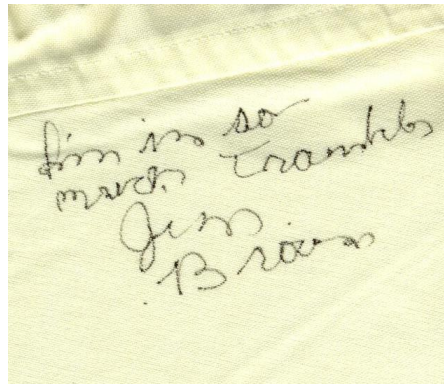 I'm in so
much Trouble
Jim
Brown